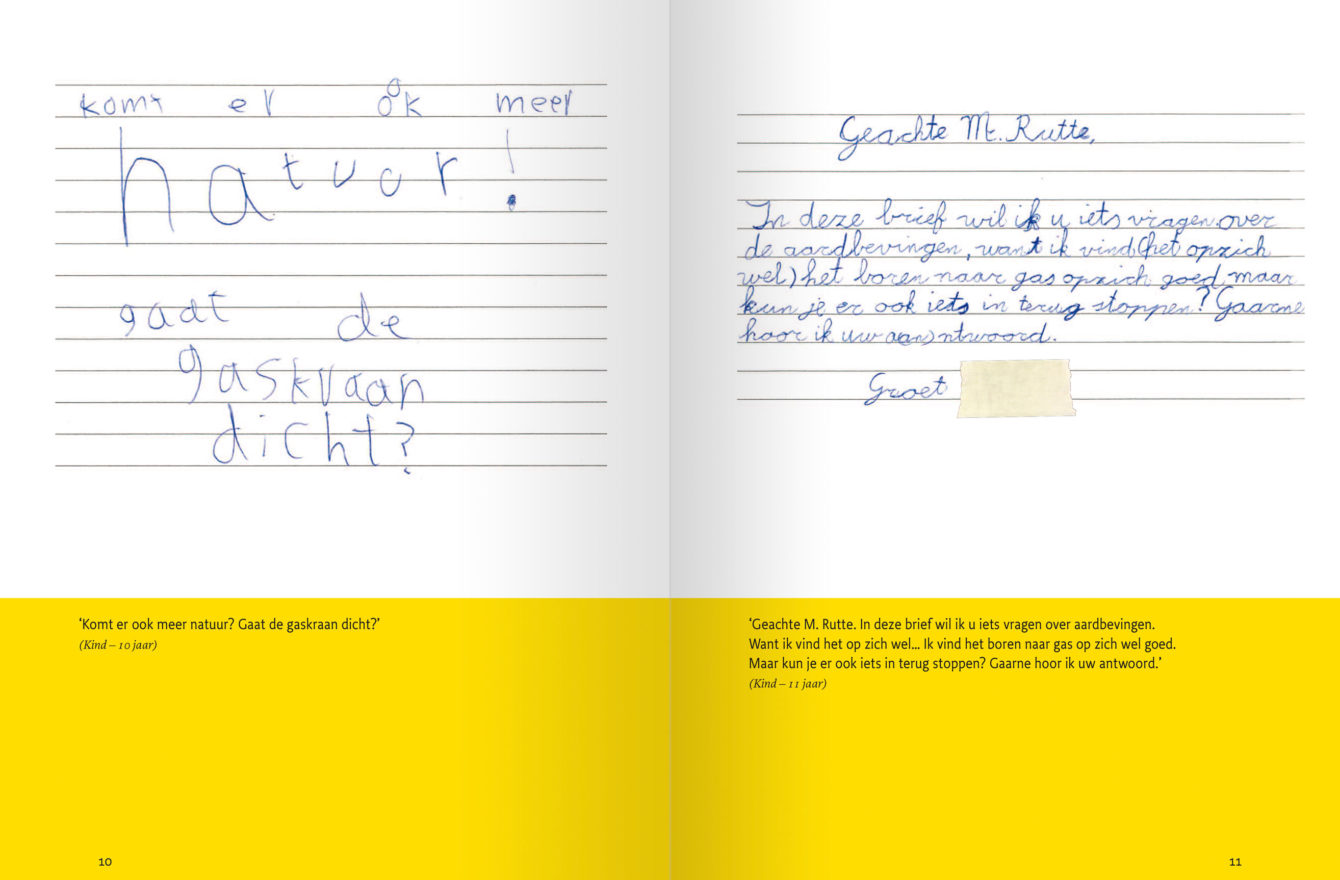 komt er ook meer
natuur!
gaat de
gaskraan
dicht?
‘Komt er ook meer natuur? Gaat de gaskraan dicht?’
(Kind – 10 jaar)
10
Geachte M. Rutte,
In deze brief wil ik u iets vragen over
de aardbevingen, want ik vind (het opzich
wel) het boren naar gas opzich goed maar
kun je er ook iets in terug stoppen? Gaarne
hoor ik uw aan)ntwoord.
Groet
‘Geachte M. Rutte. In deze brief wil ik u iets vragen over aardbevingen.
Want ik vind het op zich wel... Ik vind het boren naar gas op zich wel goed.
Maar kun je er ook iets in terug stoppen? Gaarne hoor ik uw antwoord.’
(Kind – 11 jaar)
11